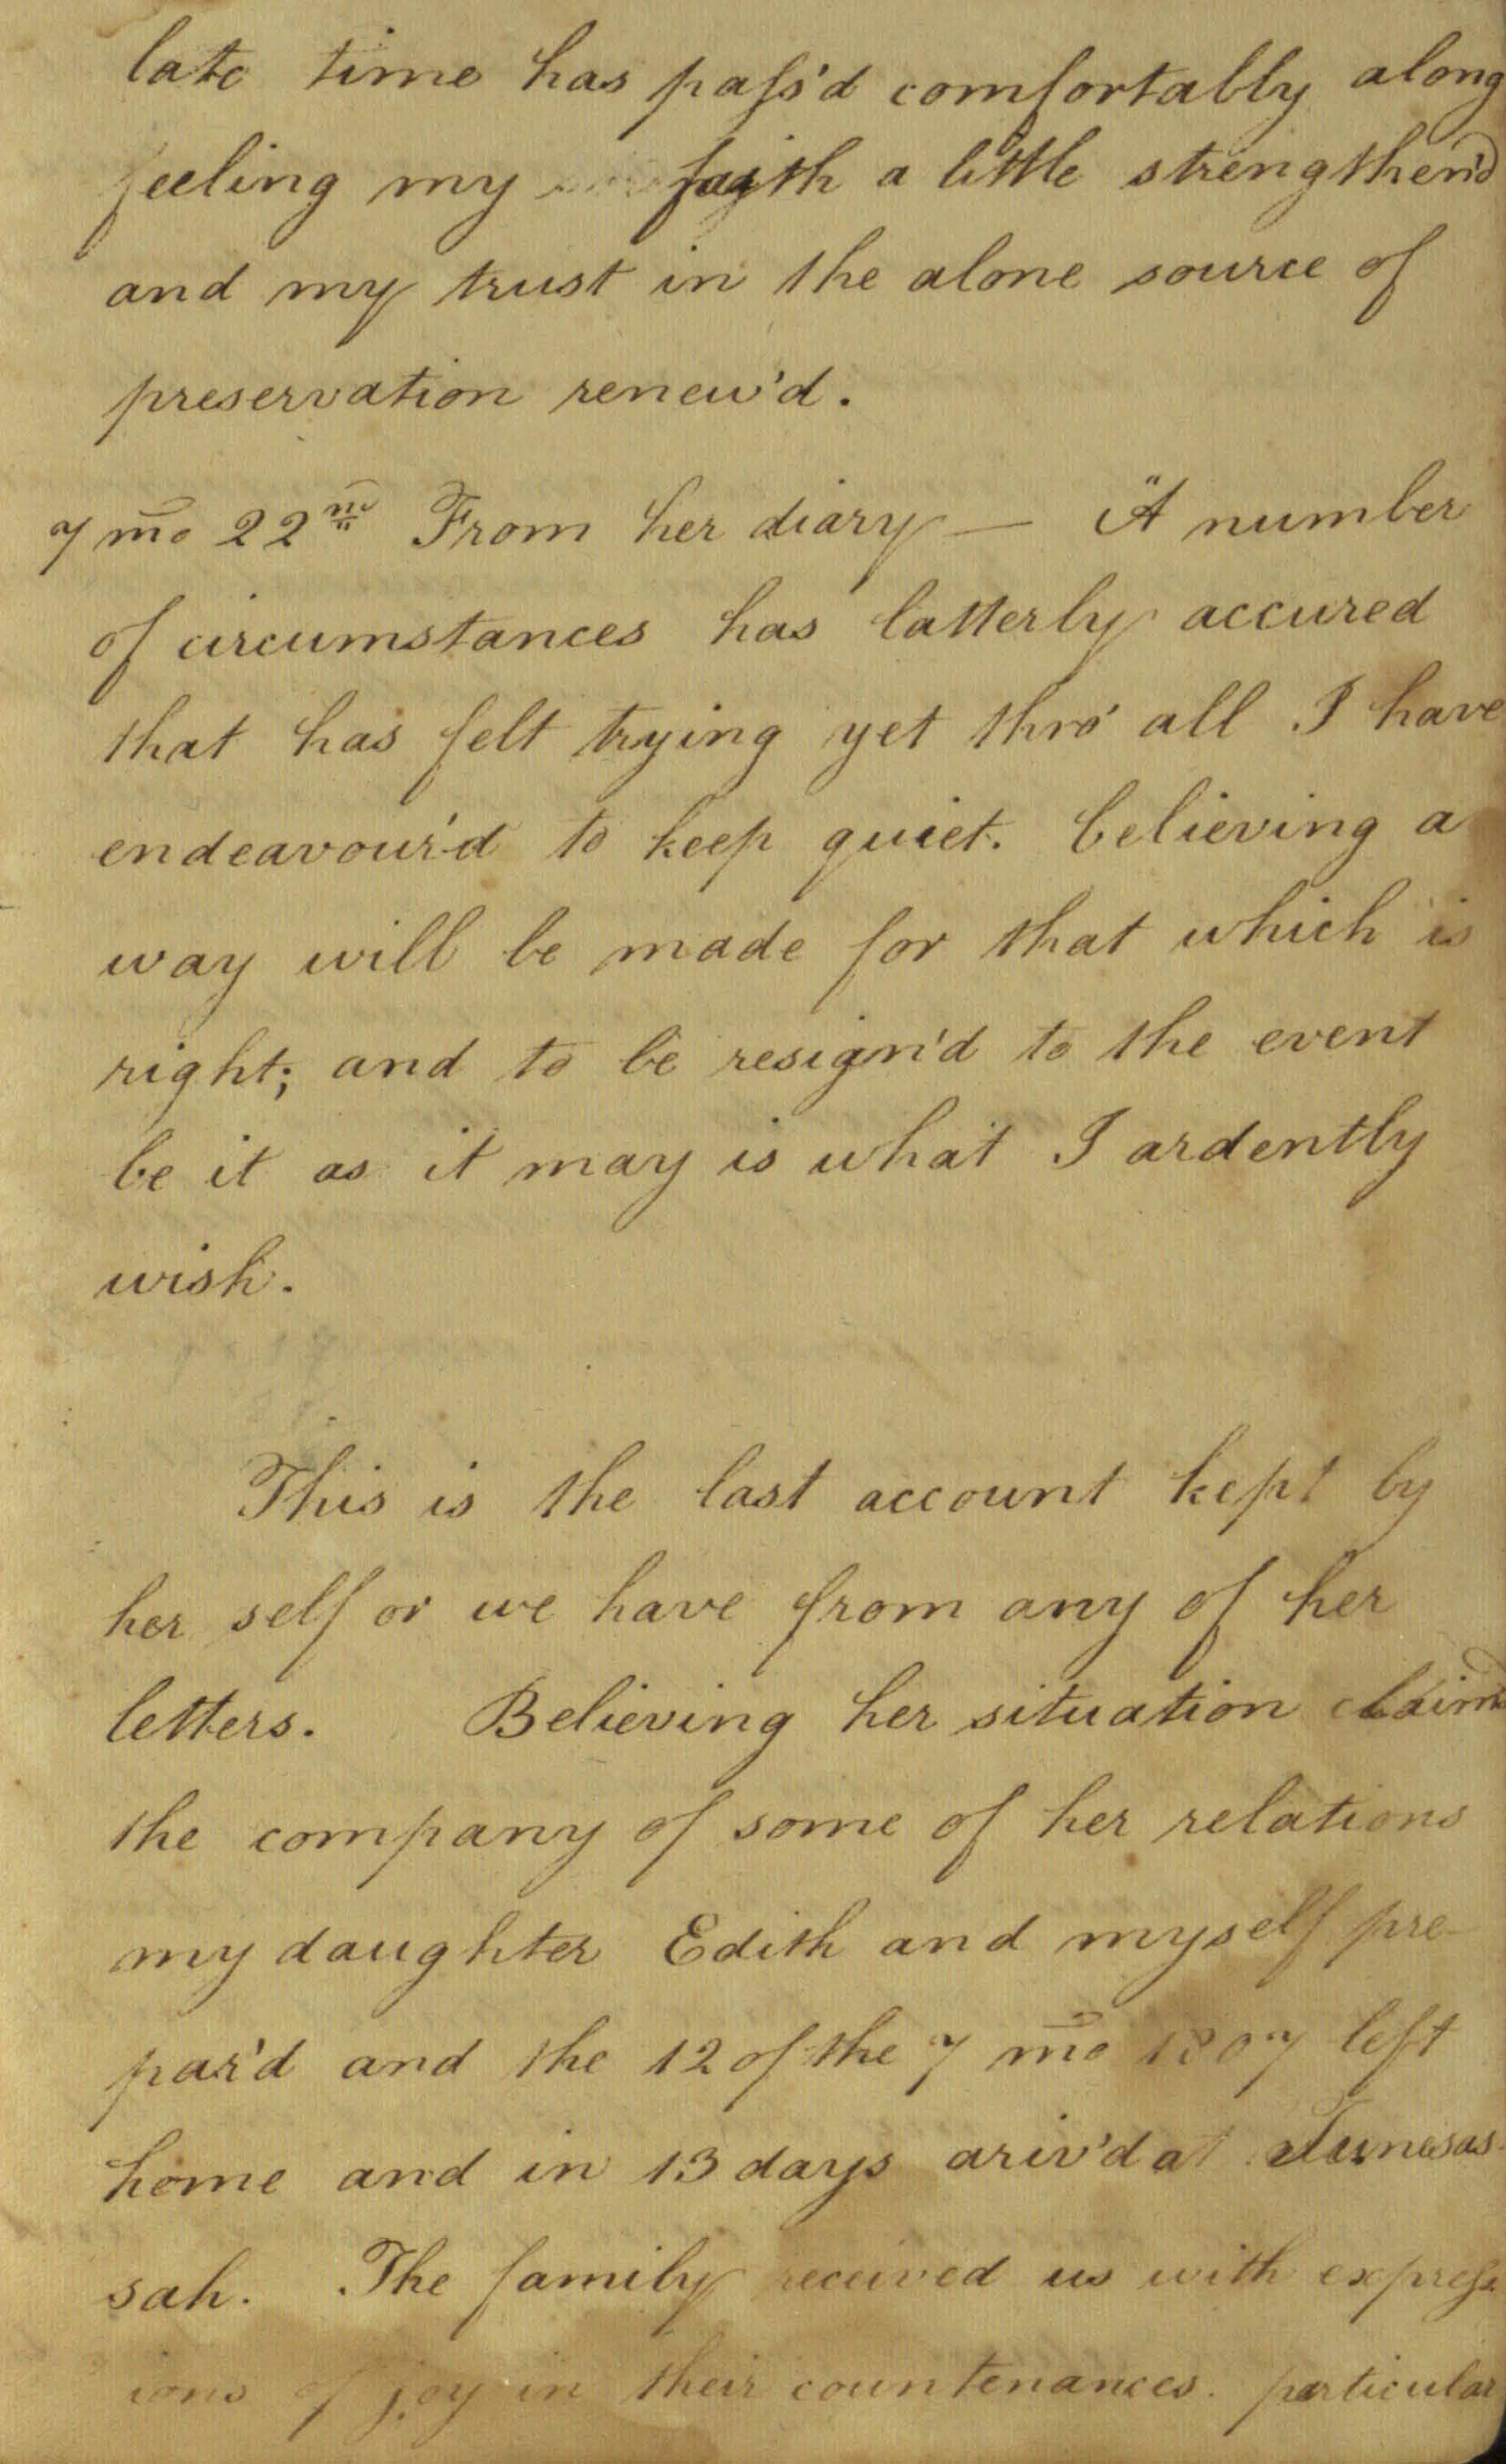 late time has pass'd comfortably along
feeling my faith a little strengthen'd
and my trust in the alone source of
preservation renew'd.
7 mo 22nd From her diary — "A number
of circumstances has latterly accured
that has felt trying yet thro' all I have
endeavour'd to keep quiet. believing a
way will be made for that which is
right; and to be resign'd to the event
be it as it may is what I ardently
wish.
This is the last account kept by
her self or we have from any of her
letters. Believing her situation claim'd
the company of some of her relations
my daughter Edith and myself pre-
par'd and the 12 of the 7 mo 1807 left
home and in 13 days ariv'd at Tunesas-
sah. The family received us with express
ions of joy in their countenances. particular